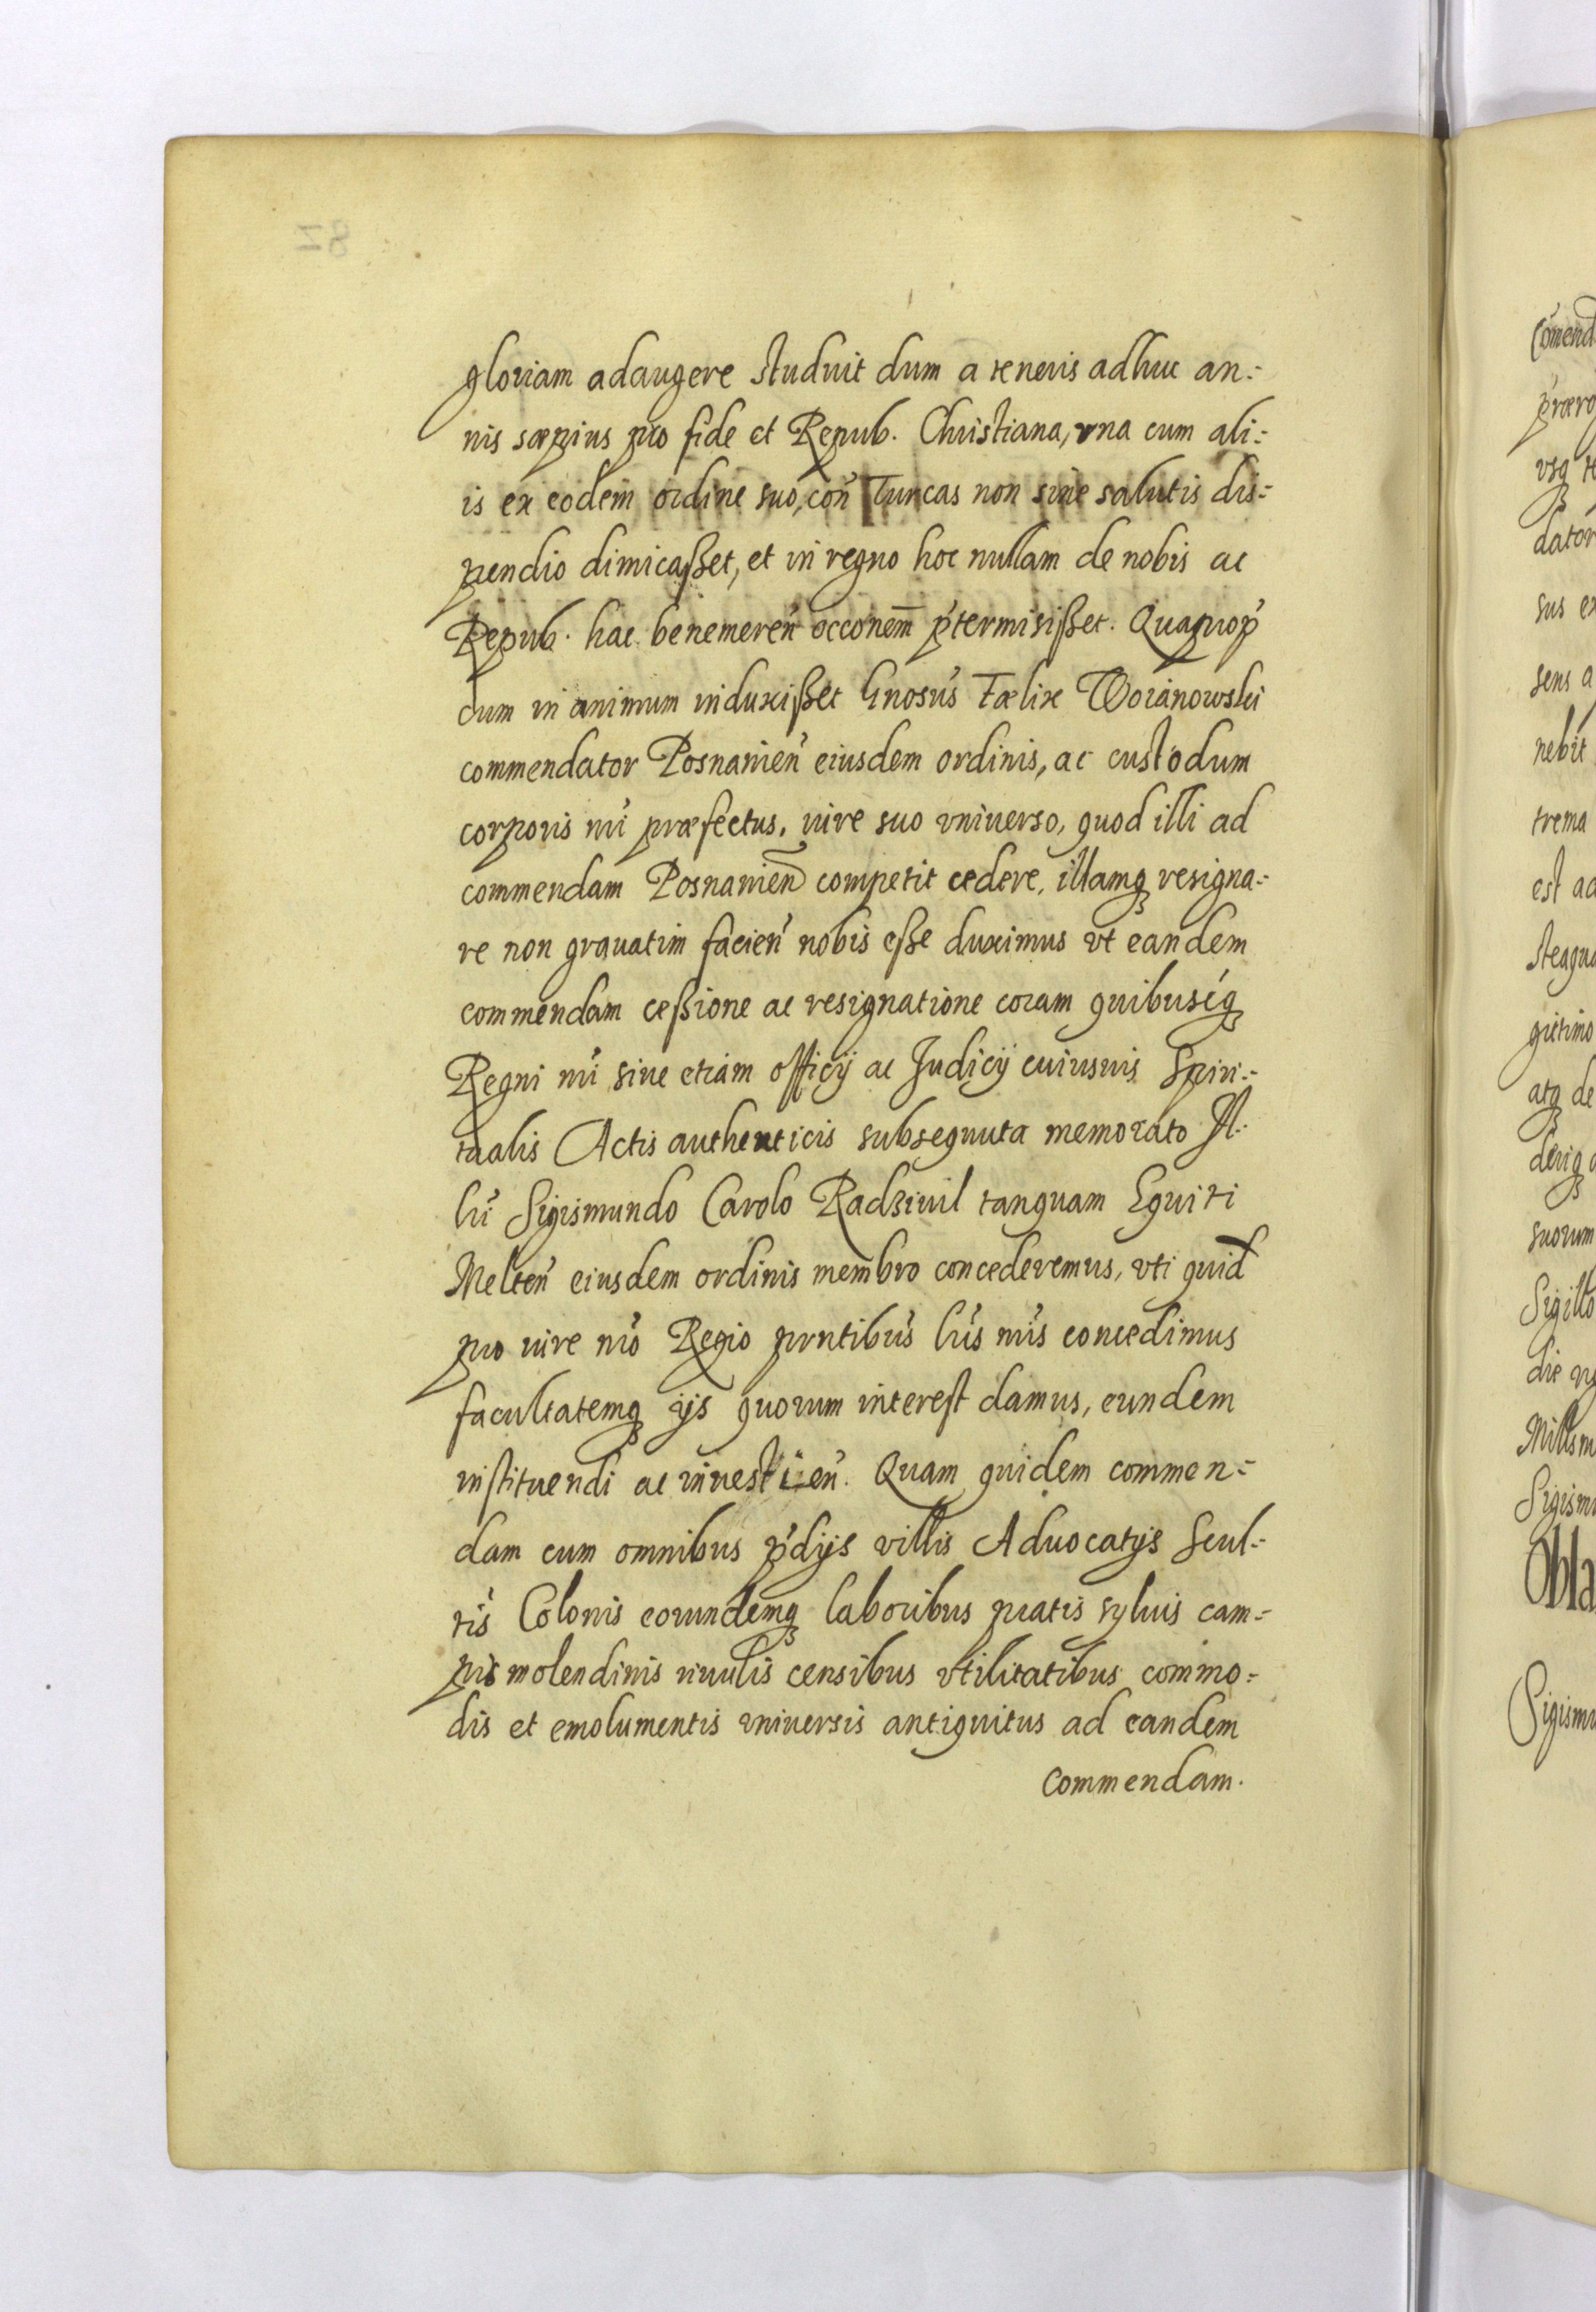 gloriam adaugere studuit dum a teneris adhuc an:
nis sæpius pro fide et Repub. Christiana, vna cum ali:
is ex eodem ordine suo, coń Turcas non sine salutis dis:
pendio dimicaßet, et in regno hoc nullam de nobis ac
Repub. hac benemereń occonem̄ ṕtermisißet. Quaproṕ
cum in animum induxißet Gnosús Fœlix Woianowski
commendator Posnanień eiusdem ordinis, ac custodum
corporis nri præfectus, iure suo vniuerso, quod illi ad
commendam Posnanień competit cedere, illamq resigna:
re non grauatim facień nobis eße duximus vt eandem
commendam ceßione ac resignatione coram quibusiq
Regni nri siue etiam officij ac Judicij cuiusuis Spiri:
tualis Actis authenticis subsequuta memorato Il:
lri Sigismundo Carolo Radziuil tanquam Equiti
Melteń eiusdem ordinis membro concederemus, vti quid
pro iure nro Regio prntibus lris nris concedimus
facultatemq ijs quorum interest damus, eundem
instituendi ac inuestień. Quam quidem commen:
dam cum omnibus ṕdijs villis Aduocatijs Scul:
tis Colonis eorundemq laboribus pratis syluis cam:
pis molendinis riuulis censibus vtilitatibus commo:
dis et emolumentis vniuersis antiquitus ad eandem
commendam.